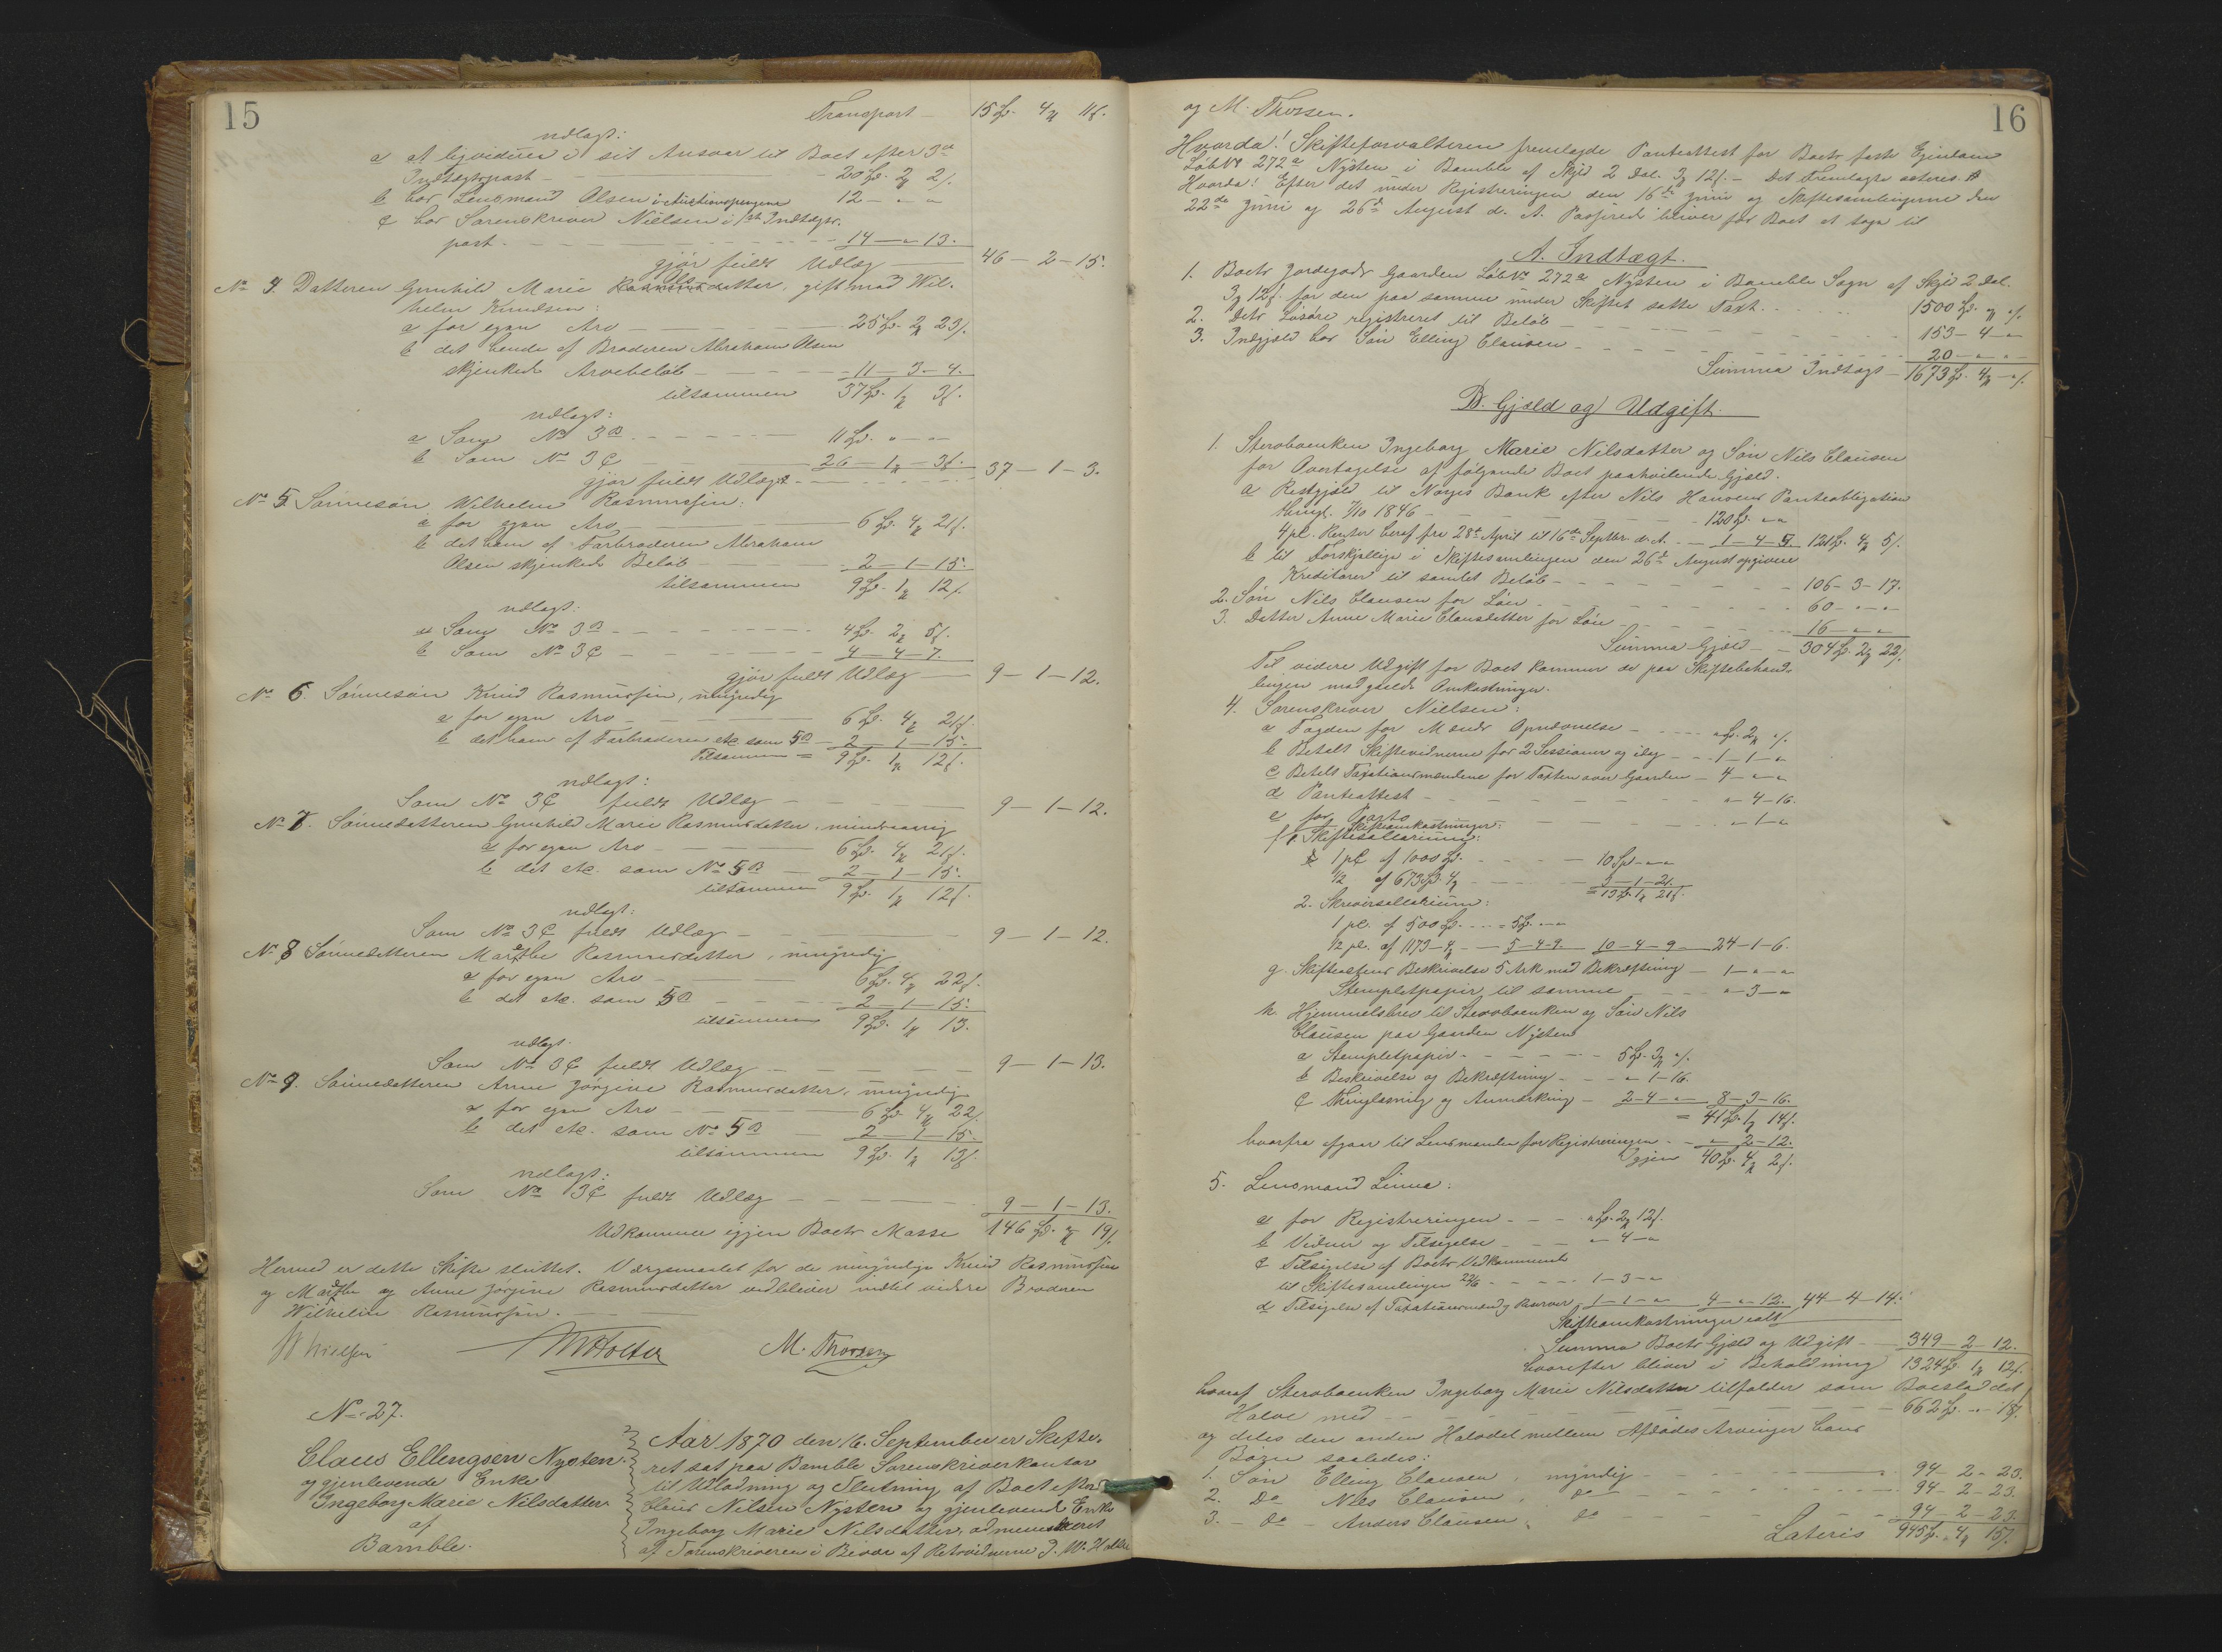 15
Transport - 15 Spd. 4 # 11 s.
udlagt:
a at liqvidere i sit Ansvar til Boet efter 3die
Indtægtspost - 20 Spd. 2 # 2 s.
b hos Lensmand Olsen i Auctionspengene 12 - " - "
c hos Sorenskriver Nielsen i 1ste Indtægts-
post - 14 - " - 13.
gjør fuldt Udlæg 46 - 2 - 15.
No 4. Datteren Gunhild Marie Olsdatter, gift med Wil-
helm Knudsen:
a for egen Arv - 25 Spd. 2 # 23 s.
b det hende af Broderen Abraham Olsen
skjenkede Arvebeløb - 11 - 3 - 4.
tilsammen 37 Spd. 1 # 3 s.
udlagt:
a Som No 3 B - 11 Spd. " - "
b Som No 3 C - 26 - 1 # - 3 s.
gjør fuldt Udlæg - 37 - 1 - 3.
No 5 Sønnesøn Wilhelm Rasmussen:
a for egen Arv - 6 Spd. 4 # 21 s.
b det ham af Farbroderen Abraham
Olsen skjenkede Beløb - 2 - 1 - 15.
tilsammen 9 Spd. 1 # 12 s.
udlagt:
a Som No 3 B - 4 Spd. 2 # 5 s.
b Som No 3 C - 4 - 4 - 7.
gjør fuldt Udlæg - 9 - 1 - 12.
No 6. Sønnesøn Knud Rasmussen, umyndig
a for egen Arv - 6 Spd. 4 # 21 s.
b det ham af Farbroderen etc. som 5 B - 2 - 1 - 15.
Tilsammen = 9 Spd. 1 # 12 s.
udlagt:
Som No 3 C fuldt Udlæg - 9 - 1 - 12.
No 7. Sønnedatteren Gunhild Marie Rasmusdatter, mindreaarig
a for egen Arv - 6 Spd. 4 # 21 s.
b det etc. som No 5 B - 2 - 1 - 15.
tilsammen 9 Spd. 1 # 12 s.
udlagt:
Som No 3 C fuldt Udlæg - 9 - 1 - 12.
No 8 Sønnedatteren Marthe Rasmusdatter, umyndig
a for egen Arv - 6 Spd. 4 # 22 s.
b det etc. som 5 B - 2 - 1 - 15.
tilsammen 9 Spd. 1 # 13.
udlagt.
Som No 3 C fuldt Udlæg - 9 - 1 - 13.
No 9. Sønnedatteren Anne Jørgine Rasmusdatter, umyndig
a for egen Arv - 6 Spd. 4 # 22 s.
b det etc. som No 5 B - 2 - 1 - 15.
tilsammen 9 Spd. 1 # 13 s.
udlagt:
Som No 3 C fuldt Udlæg - 9 - 1 - 13.
Udkommer igjen Boets Masse 146 Spd. " # 19 s.
Hermed er dette Skifte sluttet. Værgemaalet for de umyndige Knud Rasmussen
og Marthe og Anne Jørgine Rasmusdatter vedbliver indtil videre Broderen
Wilhelm Rasmussen.
Nielsen M. Thorsen
No 27.
Claus Ellengsen Nysten
og gjenlevende Enke
Ingeborg Marie Nilsdatter
af
Bamble.
Aar 1870 den 16. September er Skifte-
ret sat paa Bamble Sorenskriverkontor
til Udlodning og Slutning af Boet efter
Claus Nilsen Nysten og gjenlevende Enke
Ingeborg Marie Nilsdatter, administreret
af Sorenskriveren i Bivær af Retsvidnerne J. W. Holter
16
og M. Thorsen.
Hvorda! Skifteforvalteren fremlagde Panteattest for Boets faste Eiendom
Løb No 272a Nysten i Bamble af Skyld 2 Dal. 3 # 12 s. - Det fremlagte acteres.
Hvorda! Efter det under Registreringen den 16de Juni og Skiftesamlingerne den
22de Juni og 26de August d. A. Passerede bliver for Boet at tage til
A. Indtægt.
1. Boets Jordegods Gaarden Løb No 272a Nysten i Bamble Sogn af Skyld 2 Dal.
3 # 12 s. for den paa samme under Skiftet satte Taxt - 1500 Spd. " # " s.
2. Dets Løsøre registreret til Beløb - 153 - 4 - "
3. Indgjæld hos Søn Elling Clausen - 20 - " - "
Summa Indtægt - 1673 Spd. 4 # - " s.
B. Gjæld og Udgift.
1. Stervboenken Ingeborg Marie Nilsdatter og Søn Nils Clausen
for Overtagelse af følgende Boet paahvilende Gjæld.
a Restgjæld til Norges Bank efter Nils Hansens Panteobligation
thingl. 7/10 1846 - 120 Spd. " - "
4 pC. Renter heraf fra 28de April til 16de Septbr. d. A. - 1 - 4 - 5. 121 Spd. 4 # 5 s.
b til Forskjellige i Skiftesamlingen den 26de August opgivere
Kreditorer til samlet Beløb - 106 - 3 - 17.
2. Søn Nils Clausen for Løn - 60 - " - "
3. Datter Anne Marie Clausdatter for Løn - 16 - " - "
Summa Gjæld - 304 Spd. 2 # 22 s.
Til videre Udgift for Boet kommer de paa Skiftebehand-
lingen medgaaede Omkostninger.
4. Sorenskriver Nielsen:
a Fogden for Mænds Opnævnelse - " Spd. 2 # " s.
b Betalt Skiftevidnerne for 2 Sessioner og idag - 1 - 1 - "
c Betalt Taxationsmændene for Taxten over Gaarden - 4 - " - "
d Panteattest - " - 4 - 16.
e for Porto - " - 1 - "
f Skifteomkostninger:
1. Skiftesallarium:
1 pC. af 1000 Spd. - 10 Spd. - " - "
1/2 af 673 Spd. 4 # - 3 - 1 - 21.
= 13 Spd. 1 # 21 s.
2. Skriversallarium:
1 pC. af 500 Spd. - = 5 Spd. - " - "
1/2 pC. af 1173 - 4 # - 5 - 4 - 9. 10 - 4 - 9 - 24 - 1 - 6.
g. Skifteactens Beskrivelse 5 Ark med Bekræftning - 1 - " - "
Stempletpapir til samme - " - 3 - "
h. Hjemmelsbrev til Stervboenken og Søn Nils
Clausen paa Gaarden Nysten
a Stempletpapir - 5 Spd. 3 # " s.
b Beskrivelse og Bekræftning - " - 1 - 16.
c Thinglæsning og Anmærkning - 2 - 4 - " 8 - 3 - 16.
= 41 Spd. 1 # 14 s.
hvorfra afgaar til Lensmanden for Registreringen - " - 2 - 12.
Igjen 40 Spd. 4 # 2 s.
5. Lensmand Linna:
a for Registreringen - " Spd. 2 # 12 s.
b Vidner og Tilsigelse - " - 4 - "
c Tilsigelse af Boets Vedkommende
til Skiftesamlingen 22/6 - 1 - 3 - "
d Tilsigelse af Taxationsmænd 1 - 1 - " 4 - " - 12. 44 - 4 - 14.
Skifteomkostninger ialt
Summa Boets Gjæld og Udgift - 349 - 2 - 12.
hvorefter bliver i Beholdning 1324 Spd. 1 # 12 s.
hvoraf Stervboenken Ingeborg Marie Nilsdatter tilfalder som Boeslod det
Halve med - 662 Spd. " - 18 s.
og deles den anden Halvdel mellem Afdødes Arvinger hans
Børn saaledes:
1. Søn Elling Clausen, myndig - 94 - 2 - 23.
2. Do Nils Clausen, do - 94 - 2 - 23.
3. - Do - Anders Clausen, do - 94 - 2 - 23.
Lateris 945 Spd. 4 # 15 s.